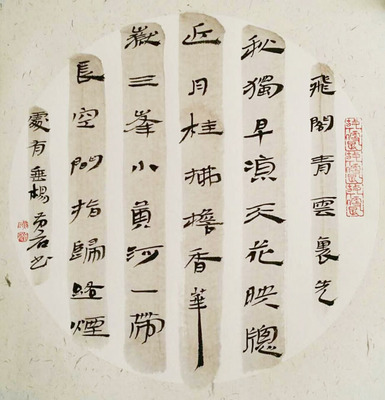 飛閣青雲裏先
秋獨早凉天花映牕
近月桂拂檐香華
嶽三峯小黃河一帶
長空間指歸路煙
處有垂楊